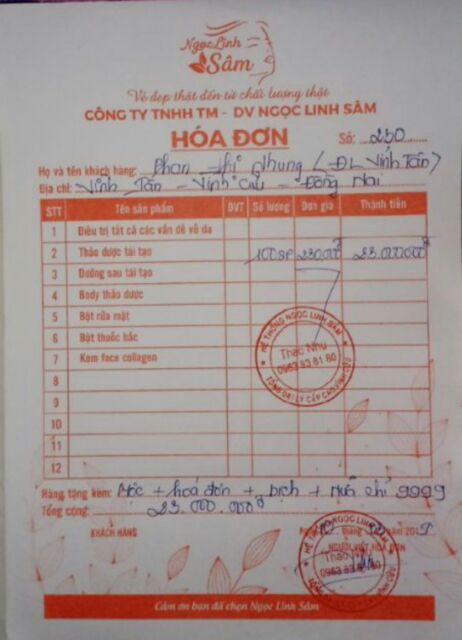 Ngọc Linh
Sâm
Vẻ đẹp thật đến từ chất lượng thật
CÔNG TY TNHH TM - DV NGỌC LINH SÂM
HÓA ĐƠN
Số: 230
Họ và tên khách hàng: Phan Thị Nhung (ĐL Vĩnh Tân)
Địa chỉ: Vĩnh Tân - Vĩnh Cửu - Đồng Nai
STT Tên sản phẩm ĐVT Số lượng Đơn giá Thành tiền
1 Điều trị tất cả các vấn đề về da
2 Thảo dược tái tạo 100sp 230.000đ 23.000.000đ
3 Dưỡng sau tái tạo
4 Body thảo dược
5 Bột rửa mặt
6 Bột thuốc bắc
7 Kem face collagen
8
9
10
11
12
HỆ THỐNG NGỌC LINH SÂM
Thảo Như
0963 83 81 80
TỔNG ĐẠI LÝ CẤP CAO
Hàng tặng kèm: Cọc + hoá đơn + bịch + muỗ chỉ 9999
Tổng cộng: 23.000.000đ
tháng 2019
KHÁCH HÀNG
NGƯỜI VIẾT HÓA ĐƠN
HỆ THỐNG NGỌC LINH SÂM
0963 83 81 80
Cảm ơn bạn đã chọn Ngọc Linh Sâm